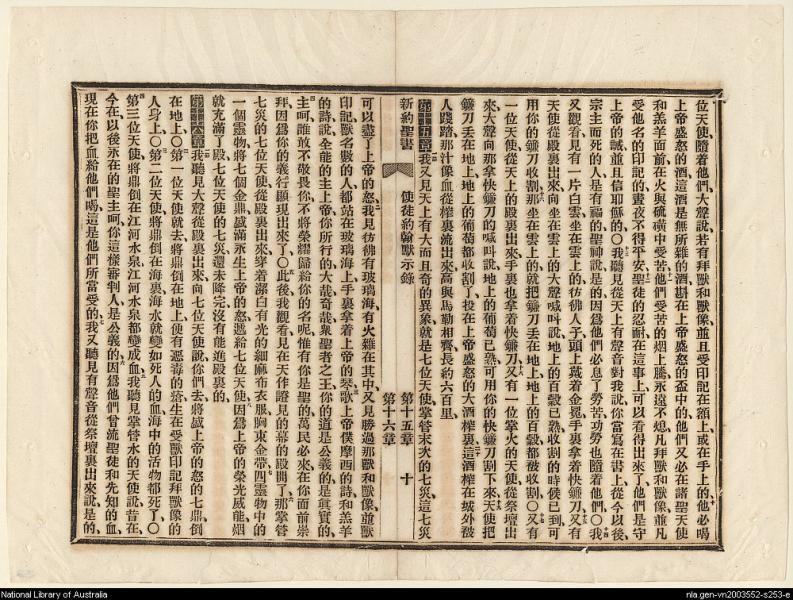 位天使、隨着他們、大聲說、若有拜獸和獸像、並且受印記在額上、或在手上的、他必喝
上帝盛怒的酒、這酒是無所雜的酒、斟在上帝盛怒的盃中的、他們又必在諸聖天使
和羔羊面前、在火與硫磺中受苦、他們受苦的烟上騰、永遠不熄、凡拜獸和獸像、並凡
受他名的印記的、晝夜不得平安、聖徒的忍耐在這事上、可以看得出來了、他們是守
上帝的誡、並且信耶穌的、〇我聽見從天上有聲音對我說、你當寫在書上、從今以後、
宗主而死的人是有福的、聖神說、是的、因爲他們必息了勞苦、功勞也隨着他們、〇我
又觀看、見有一片白雲、坐在雲上的、彷彿人子、頭上戴着金冕、手裏拿着快鐮刀、又有
天使從殿裏出來、向坐在雲上的大聲喊叫說、地上的百穀已熟、收割的時候已到、可
用你的鐮刀收割、那坐在雲上的、就把鐮刀丟在地上、地上的百穀都被收割、〇又有
一位天使從天上的殿裏出來、手裏也拿着快鐮刀、又有一位掌火的天使、從祭壇出
來、大聲向那拿快鐮刀的喊叫說、地上的葡萄已熟、可用你的快鐮刀割下來、天使把
鐮刀丟在地上、地上的葡萄都收割了、投在上帝盛怒的大酒榨裏、這酒榨在城外被
人踐踏、那汁像血從榨裏流出來、高與馬勒相齊、長約六百里、
第十五章 我又見天上有大而且奇的異象、就是七位天使掌管末次的七災、這七災
新約聖書 使徒約翰默示錄 第十五章 第十六章 十
可以盡了上帝的怒、我見彷彿有玻璃海、有火雜在其中、又見勝過那獸和獸像、並獸
印記、獸名數的人、都站在玻璃海上、手裏拿着上帝的琴、歌上帝僕摩西的詩、和羔羊
的詩說、全能的主上帝、你所行的大哉奇哉、衆聖者之王、你的道是公義的、是眞實的、
主呵、誰敢不敬畏你、不將榮耀歸給你的名呢、惟有你是聖的、萬民必來在你面前崇
拜、因爲你的義行顯現出來了、〇此後我觀看、見在天作證見的幕的殿開了、那掌管
七災的七位天使從殿裏出來、穿着潔白有光的細麻布衣服、胸束金帶、四靈物中的
一個靈物、將七個金鼎、盛滿永生上帝的怒、遞給七位天使、因爲上帝的榮光威能、烟
就充滿了殿、七位天使的七災還未降完、沒有能進殿裏的、
第十六章 我聽見大聲從殿裏出來、向七位天使說、你們去、將盛上帝的怒的七鼎倒
在地上、〇第一位天使就去、將鼎倒在地上、便有惡毒的瘡生在受獸印記拜獸像的
人身上、〇第二位天使、將鼎倒在海裏、海水就變如死人的血、海中的活物都死了、〇
第三位天使、將鼎倒在江河水泉、江河水泉都變成血、我聽見掌管水的天使說、昔在
今在、以後永在的聖主呵、你這樣審判人是公義的、因爲他們曾流聖徒和先知的血、
現在你把血給他們喝、這是他們所當受的、我又聽見有聲音從祭壇裏出來說、是的、
National Library of Australia
nla.gen-vn2003552-s253-e